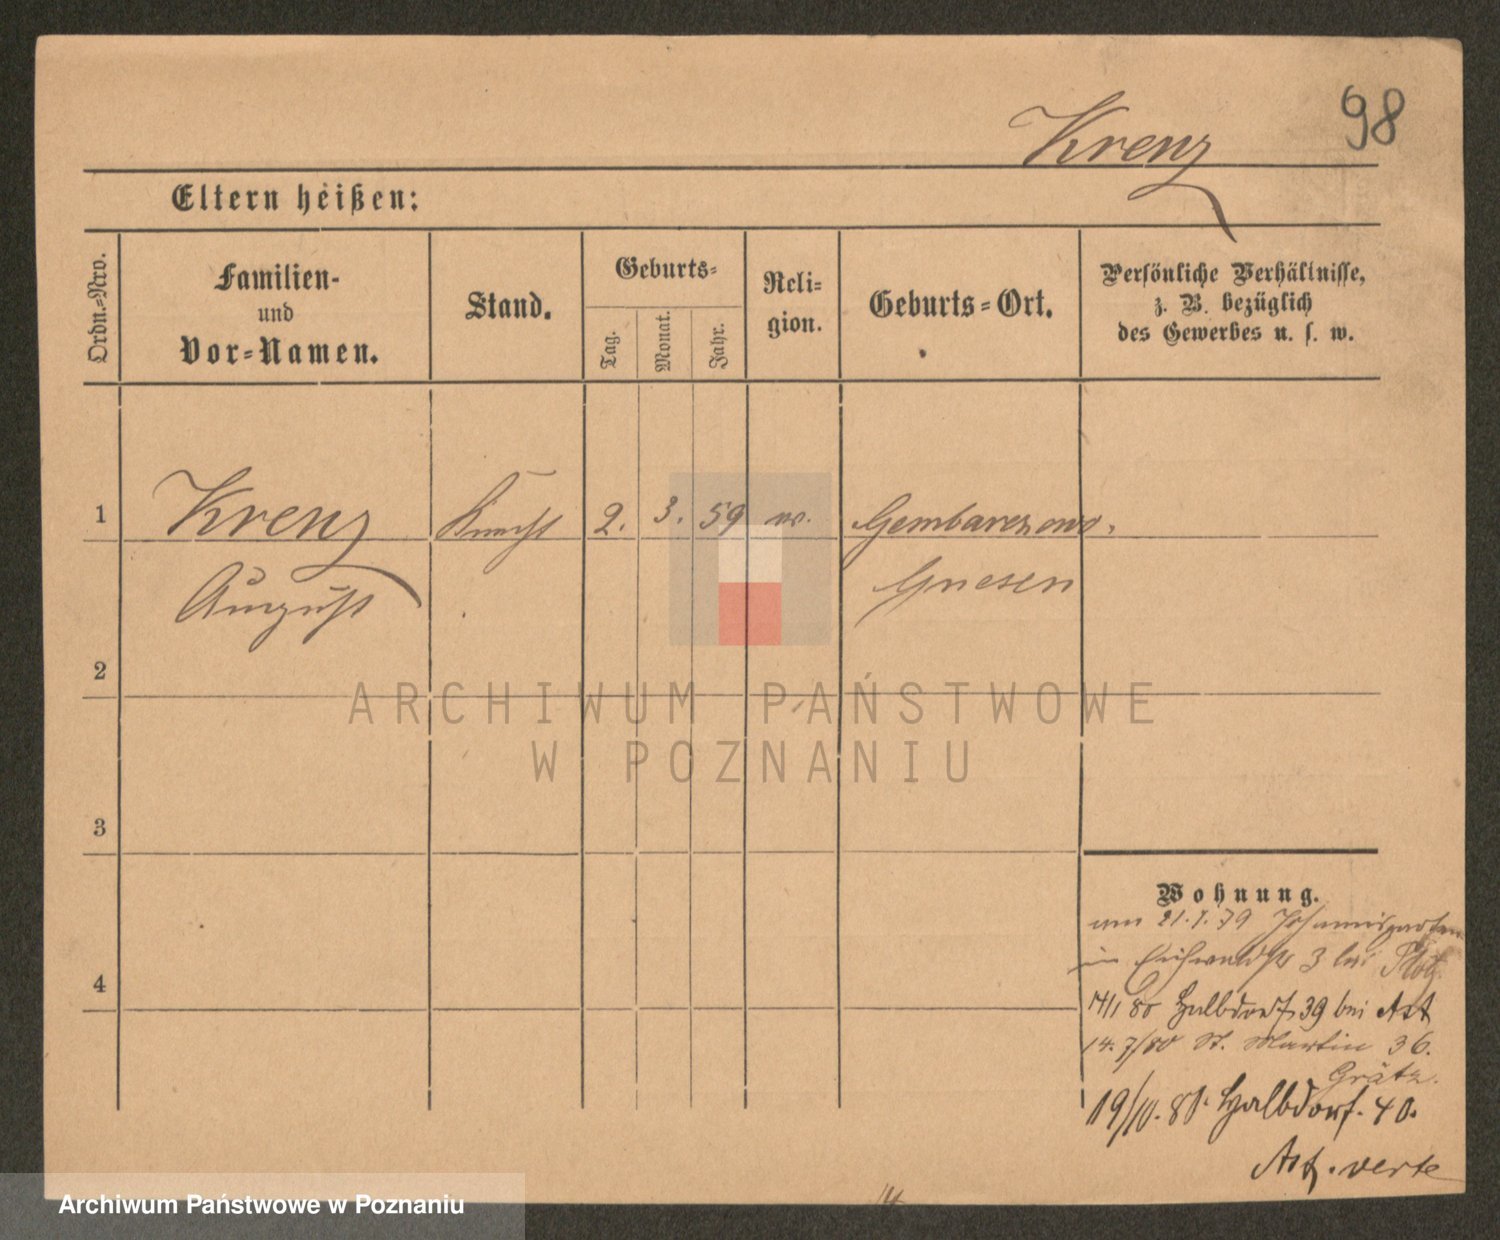 98
Krenz
Eltern heißen:
Ordn.-Nro.
Familien-
und
Vor-Namen.
Stand.
Geburts-
Tag.
Monat.
Jahr.
Reli-
gion.
Geburts-Ort.
Persönliche Verhältnisse,
z. B. bezüglich
des Gewerbes u. s. w.
1
Krenz
August
Knecht
2.
3.
59
Gembarzewo.
Gnesen
2
3
4
ARCHIWUM PAŃSTWOWE
W POZNANIU
Wohnung.
21.7.79
3 bei
14/1 80 Halbdorf 39 bei
14.7/80 St. Martin 36.
Grätz.
19/10.81. Halbdorf. 40.
verte
Archiwum Państwowe w Poznaniu